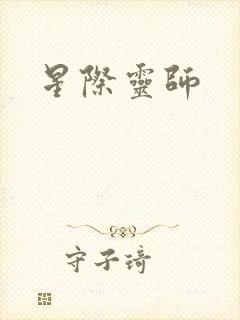 星際靈師
守子琦